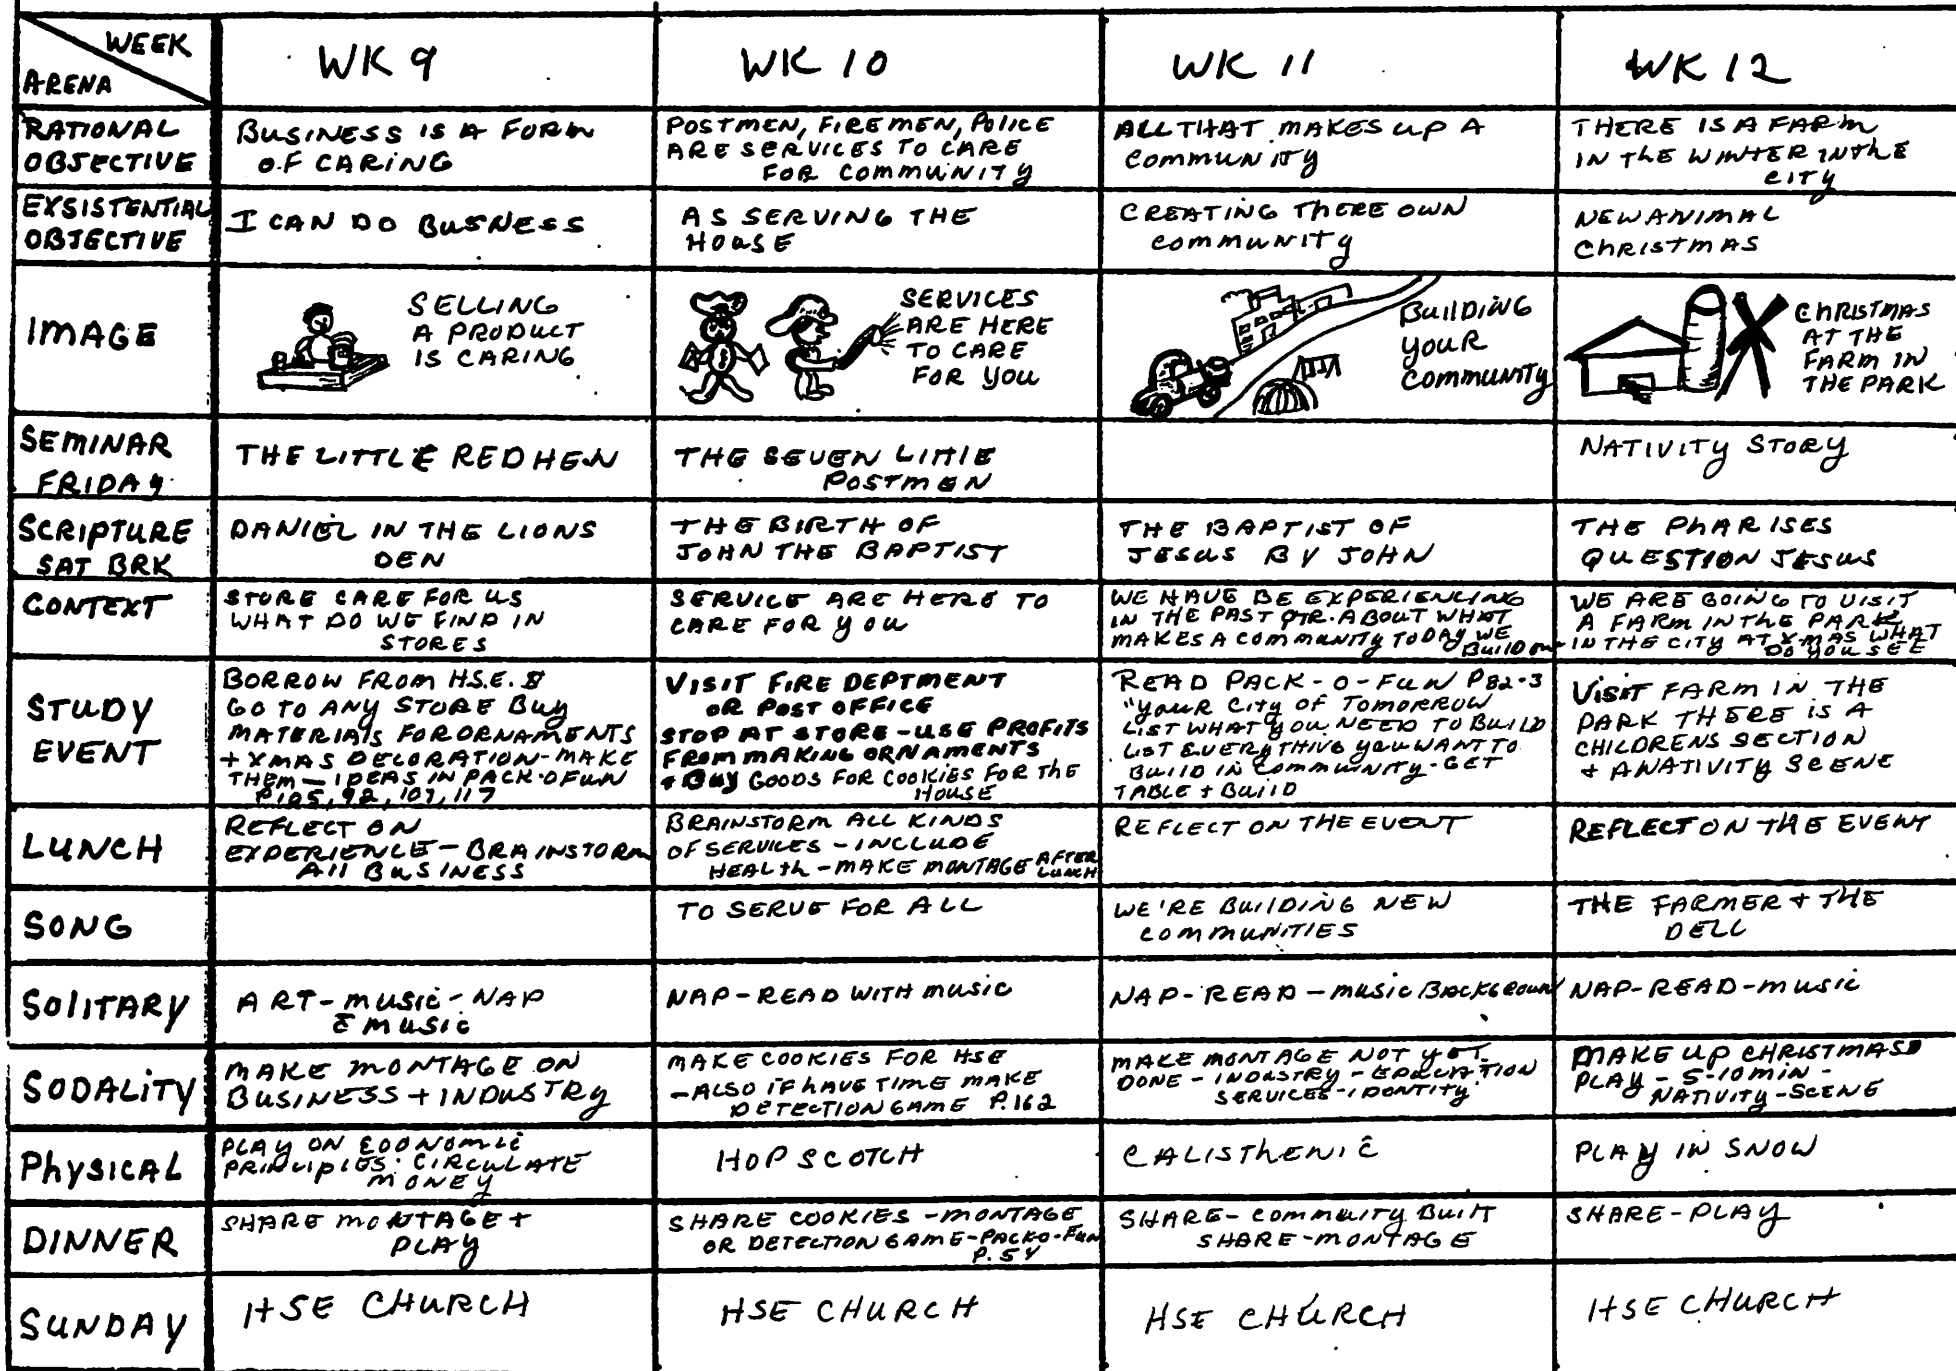 WEEK
ARENA
WK 9
WK 10
WK 11
WK 12
RATIONAL
OBJECTIVE
BUSINESS IS A FORM
OF CARING
POSTMEN, FIREMEN, POLICE
ARE SERVICES TO CARE
FOR COMMUNITY
ALL THAT MAKES UP A
COMMUNITY
THERE IS A FARM
IN THE WINTER IN THE
CITY
EXSISTENTIAL
OBJECTIVE
I CAN DO BUSNESS
AS SERVING THE
HOUSE
CREATING THERE OWN
COMMUNITY
NEW ANIMAL
CHRISTMAS
IMAGE
SELLING
A PRODUCT
IS CARING
SERVICES
ARE HERE
TO CARE
FOR YOU
BUILDING
YOUR
COMMUNITY
CHRISTMAS
AT THE
FARM IN
THE PARK
SEMINAR
FRIDAY
THE LITTLE RED HEN
THE SEVEN LITTLE
POSTMEN
NATIVITY STORY
SCRIPTURE
SAT BRK
DANIEL IN THE LIONS
DEN
THE BIRTH OF
JOHN THE BAPTIST
THE BAPTIST OF
JESUS BY JOHN
THE PHARISES
QUESTION JESUS
CONTEXT
STORE CARE FOR US
WHAT DO WE FIND IN
STORES
SERVICE ARE HERE TO
CARE FOR YOU
WE HAVE BE EXPERIENCING
IN THE PAST QTR. ABOUT WHAT
MAKES A COMMUNITY TODAY WE
BUILD ONE
WE ARE GOING TO VISIT
A FARM IN THE PARK
IN THE CITY AT X-MAS WHAT
DO YOU SEE
STUDY
EVENT
BORROW FROM HS.E. $
GO TO ANY STORE BUY
MATERIALS FOR ORNAMENTS
+ XMAS DECORATION - MAKE
THEM - IDEAS IN PACK-O FUN
P.105, 92, 107, 117
VISIT FIRE DEPTMENT
OR POST OFFICE
STOP AT STORE - USE PROFITS
FROM MAKING ORNAMENTS
+ BUY GOODS FOR COOKIES FOR THE
HOUSE
READ PACK-O-FUN P82-3
"YOUR CITY OF TOMORROW
LIST WHAT YOU NEED TO BUILD
LIST EVERYTHING YOU WANT TO
BUILD IN COMMUNITY - GET
TABLE + BUILD
VISIT FARM IN THE
PARK THERE IS A
CHILDRENS SECTION
+ A NATIVITY SCENE
LUNCH
REFLECT ON
EXPERIENCE - BRAINSTORM
All BUSINESS
BRAINSTORM ALL KINDS
OF SERVICES - INCLUDE
HEALTH - MAKE MONTAGE AFTER
LUNCH
REFLECT ON THE EVENT
REFLECT ON THE EVENT
SONG
TO SERVE FOR ALL
WE'RE BUILDING NEW
COMMUNITIES
THE FARMER + THE
DELL
SOLITARY
ART - MUSIC - NAP
c̄ MUSIC
NAP - READ WITH MUSIC
NAP - READ - MUSIC BACKGROUN
NAP - READ - MUSIC
SODALITY
MAKE MONTAGE ON
BUSINESS + INDUSTRY
MAKE COOKIES FOR HSE
- ALSO IF HAVE TIME MAKE
DETECTION GAME P.162
MAKE MONTAGE NOT YET
DONE - INDUSTRY - EDUCATION
SERVICES - IDENTITY
MAKE UP CHRISTMAS
PLAY - 5-10 MIN -
NATIVITY - SCENE
PHYSICAL
PLAY ON ECONOMIC
PRINCIPLES: CIRCULATE
MONEY
HOP SCOTCH
CALISTHENIC
PLAY IN SNOW
DINNER
SHARE MONTAGE +
PLAY
SHARE COOKIES - MONTAGE
OR DETECTION GAME - PACK-O-FUN
P.54
SHARE - COMMUITY BUILT
SHARE - MONTAGE
SHARE - PLAY
SUNDAY
HSE CHURCH
HSE CHURCH
HSE CHURCH
HSE CHURCH